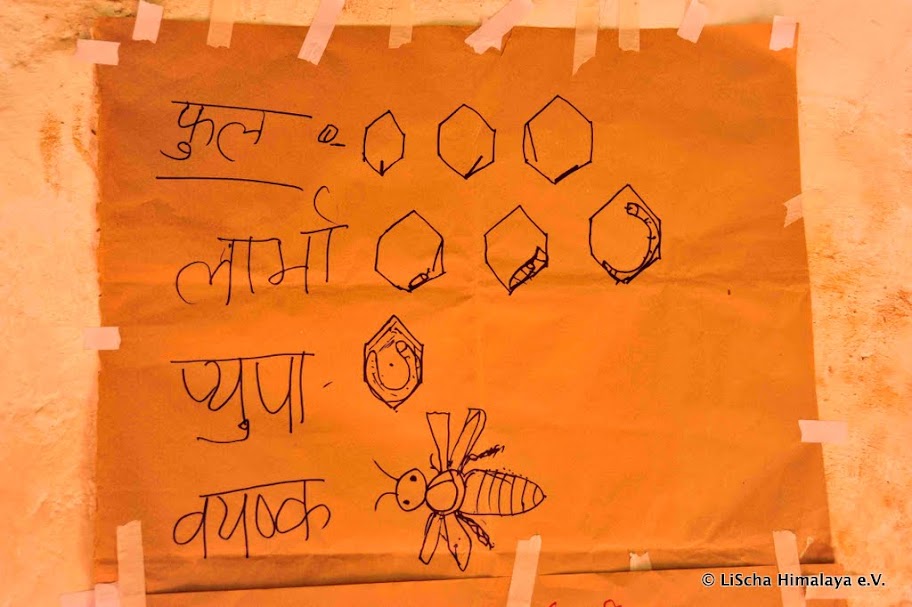 फुल
लार्भा
प्युपा
वयष्क
© LiScha Himalaya e.V.